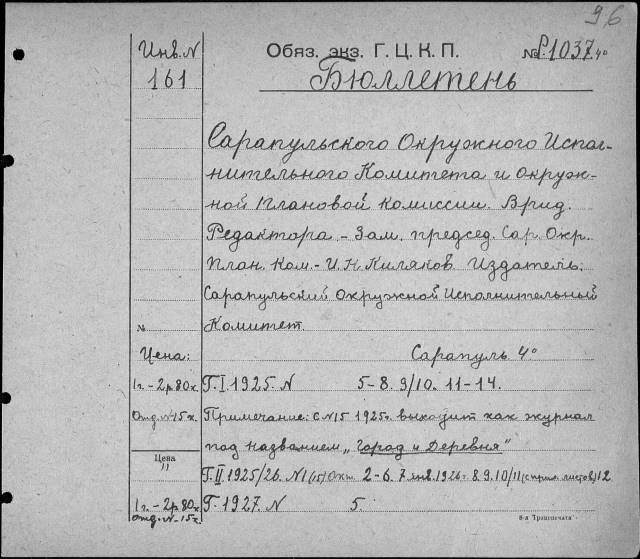 96
Инв. N
161
Обяз. экз. Г. Ц. К. П.
№ Р.1037 4°
Бюллетень
Сарапульского Окружного Испол-
нительного Комитета и окруж-
ной Плановой комиссии. Врид.
Редактора – Зам. председ. Сар. Окр.
План. Ком. – И. Н. Киляков. Издатель:
Сарапульский окружной Исполнительный
№ Комитет.
Цена: Сарапуль 4°
1г. – 2р 80к. Г. I. 1925. N 5–8. 9/10. 11–14.
Отд. № 15к. Примечание: с N 15 1925г. выходит как журнал
под названием „Город и Деревня"
Цена
"
Г. II 1925/26. N 1 (15) Окт. 2–6. 7 янв. 1926г. 8. 9. 10/11 (с прил. листов) 12
1г. – 2р. 80к. Г. 1927. N 5.
Отд. N – 15к.
8-я "Транспечата"